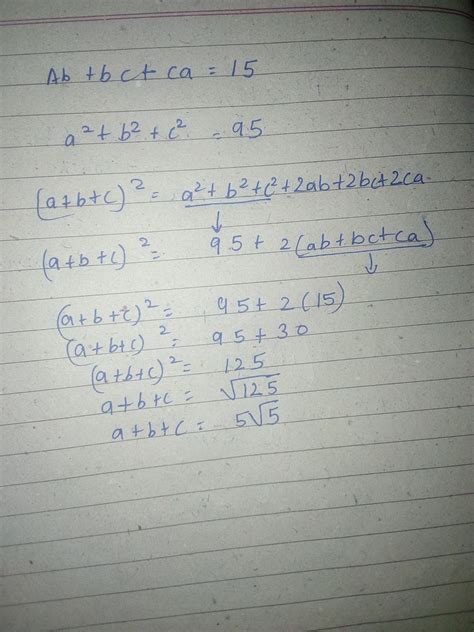 Ab + bc + ca = 15
a² + b² + c² = 95
(a+b+c)² = a² + b² + c² + 2ab + 2bc + 2ca
(a+b+c)² = 95 + 2(ab+bc+ca)
(a+b+c)² = 95 + 2(15)
(a+b+c)² = 95 + 30
(a+b+c)² = 125
a+b+c = √125
a+b+c = 5√5